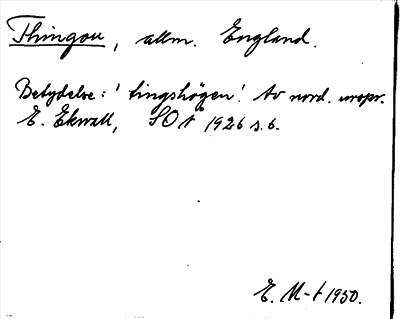 Thingou, allm. England.
Betydelse: 'tingshögen'. Av nord. urspr.
E. Ekwall, SOÅ 1926 s. 6.
E. M-t 1950.